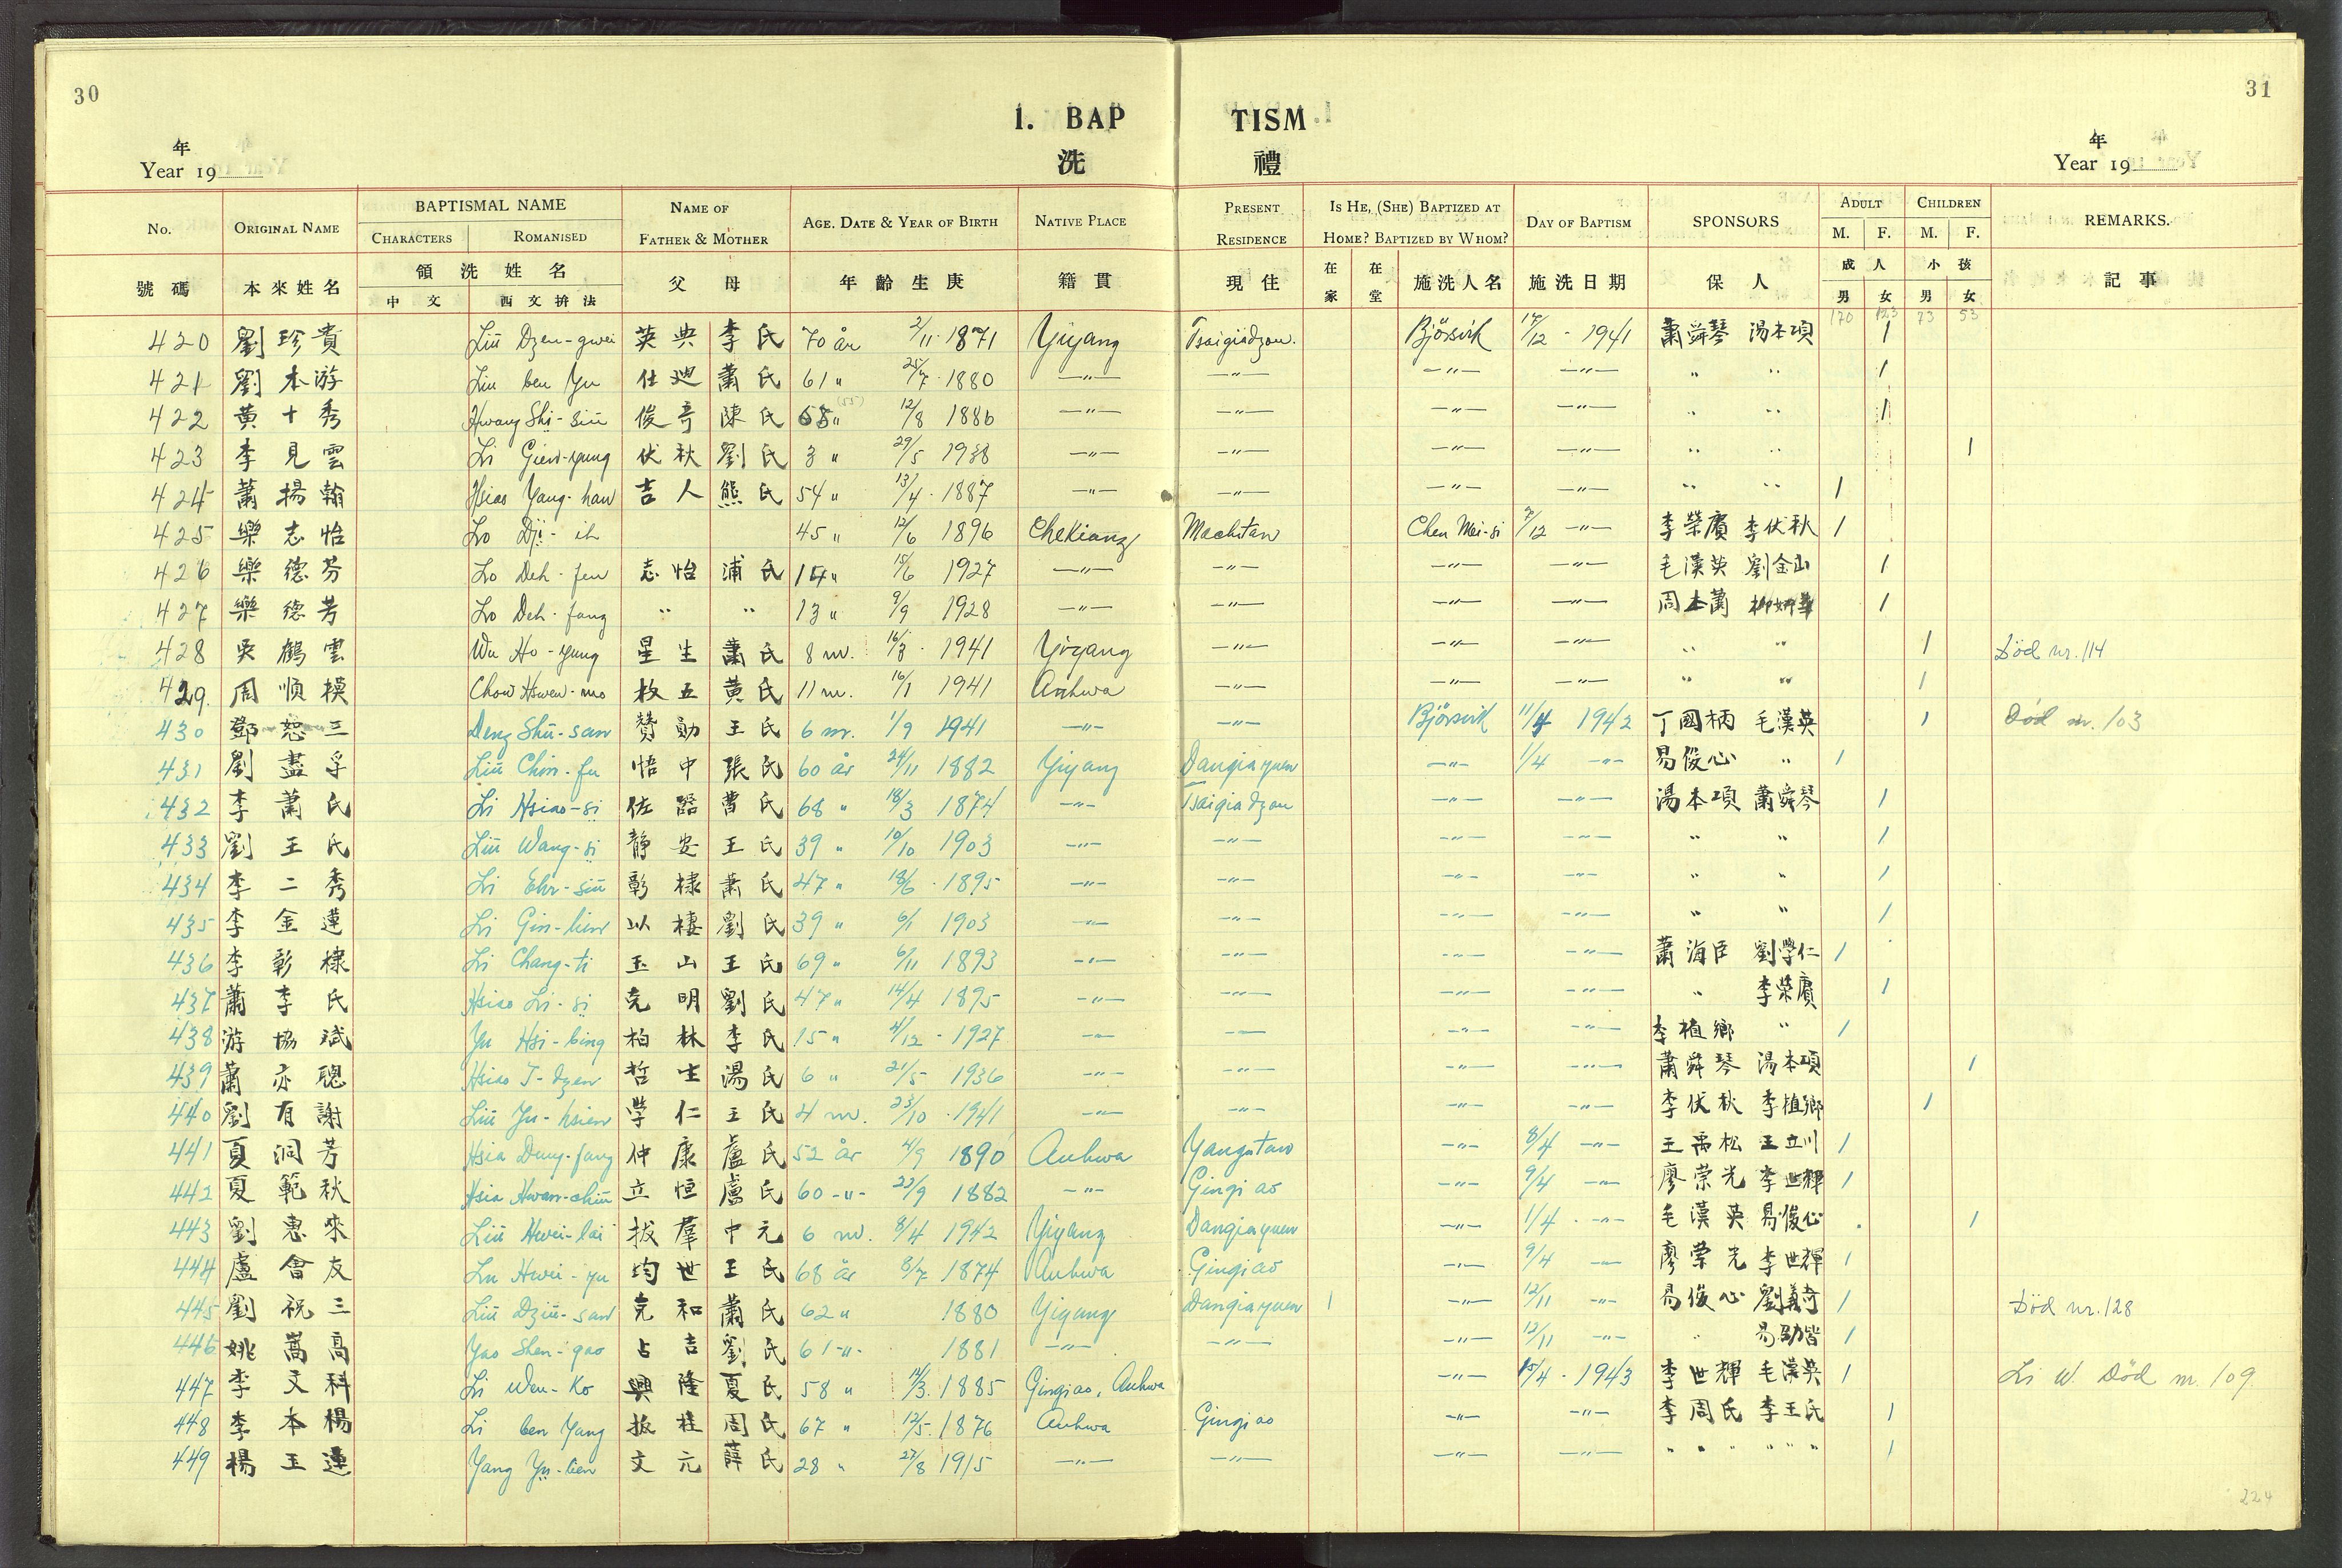 30
31
1. BAP TISM
洗 禮
年
Year 19
年
Year 19
No. ORIGINAL NAME BAPTISMAL NAME CHARACTERS ROMANISED NAME OF FATHER & MOTHER AGE. DATE & YEAR OF BIRTH NATIVE PLACE PRESENT RESIDENCE IS HE, (SHE) BAPTIZED AT HOME? BAPTIZED BY WHOM? DAY OF BAPTISM SPONSORS ADULT M. F. CHILDREN M. F. REMARKS.
號碼 本來姓名 領洗姓名 中文 西文拚法 父 母 年齡生庚 籍貫 現住 在家 在堂 施洗人名 施洗日期 保人 成人 男 女 小孩 男 女 記事
170 123 73 53
420 劉珍貴 Liü Dzen-gwei 英典 李氏 70 år 2/11 1871 Yiyang Tsaigiadzou. Björsvik 14/12 - 1941 蕭舜琴 湯本項 1
421 劉本游 Liu ben Yu 仕迎 蕭氏 61 " 25/7 1880 -"- -"- -"- -"- " " 1
422 黄十秀 Hwang Shi-siu 俊奇 陳氏 (55) " 12/8 1886 -"- -"- -"- -"- " " 1
423 李見雲 Li Gien-yung 伏秋 劉氏 3 " 29/5 1938 -"- -"- -"- -"- " " 1
424 蕭揚翰 Hsiao Yang-han 吉人 熊氏 54 " 13/4 1887 -"- -"- -"- -"- " " 1
425 樂志怡 Lo Dji-ih 45 " 12/6 1896 Chekiang Machitan Chen Mei-si 7/12 -"- 李榮賡 李伏秋 1
426 樂德芬 Lo Deh-fen 志怡 浦氏 14 " 15/6 1927 -"- -"- -"- -"- 毛漢英 劉金山 1
427 樂德芳 Lo Deh-fang " " 13 " 9/9 1928 -"- -"- -"- -"- 周本蕭 1
428 吳鶴雲 Wu Ho-yung 星生 蕭氏 8 m. 16/3 1941 Yiyang -"- -"- -"- " " 1 Död nr. 114
429. 周順模 Chow Hswen-mo 枚五 黄氏 11 m. 16/1 1941 Anhwa -"- -"- -"- " " 1
430 鄧恕三 Deng Shü-san 贊勛 王氏 6 m. 1/9 1941 -"- -"- Björsvik 11/4 1942 丁國柄 毛漢英 1 Död nr. 103
431 劉盡孚 Liü Chin-fu 悟中 張氏 60 år 24/11 1882 Yiyang Dangiayuen -"- 1/4 -"- 易俊心 " 1
432 李蕭氏 Li Hsiao-si 佐臨 曹氏 68 " 18/3 1874 -"- Tsaigiadzou -"- -"- 湯本項 蕭舜琴 1
433 劉王氏 Liü Wang-si 靜安 王氏 39 " 10/10 1903 -"- -"- -"- -"- " " 1
434 李二秀 Li Ehr-siü 彰棣 蕭氏 47 " 18/6 1895 -"- -"- -"- -"- " " 1
435 李金蓮 Li Gin-lien 以棲 劉氏 39 " 6/1 1903 -"- -"- -"- -"- " " 1
436 李彰棣 Li Chang-ti 玉山 王氏 69 " 6/11 1893 -"- -"- -"- -"- 蕭海臣 劉學仁 1
437 蕭李氏 Hsiao Li-si 克明 劉氏 47 " 14/4 1895 -"- -"- -"- -"- " 李榮賡 1
438 游協斌 Yu Hsi-bing 柏林 李氏 15 " 4/12 - 1927 -"- -"- -"- -"- 李植鄉 " 1
439 蕭亦聰 Hsiao I-dzen 哲生 湯氏 6 " 21/5 1936 -"- -"- -"- -"- 蕭舜琴 湯本項 1
440 劉有謝 Liü Yu-hsien 學仁 王氏 4 m. 23/10 1941 -"- -"- -"- -"- 李伏秋 李植鄉 1
441 夏洞芳 Hsia Dung-fang 仲康 盧氏 52 år 4/9 1890 Anhwa Yangtan -"- 8/4 -"- 王禹松 王立川 1
442 夏範秋 Hsia Hwan-chiü 立恒 盧氏 60 -"- 22/9 1882 -"- Gingiao -"- 9/4 -"- 廖荣光 李世輝 1
443 劉惠來 Liü Hwei-lai 拔羣 中元 6 m. 8/4 1942 Yiyang Dangiayuen -"- 1/4 -"- 毛漢英 易俊心 1
444 盧會友 Lu Hwei-yu 均世 王氏 68 år 8/7 1874 Anhwa Gingiao -"- 9/4 -"- 廖荣光 李世輝 1
445 劉祝三 Liü Dziü-san 克和 蕭氏 62 " 1880 Yiyang Dangiayuen 1 -"- 12/11 -"- 易俊心 劉義奇 1 Död nr. 128
446 姚嵩高 Yao Shen-gao 占吉 劉氏 61 -"- 1881 -"- -"- -"- 12/11 -"- " 1
447 李文科 Li Wen-Ko 興隆 夏氏 58 " 14/3 1885 Gingiao, Anhwa -"- 15/4 - 1943 李世輝 毛漢英 1 Li W. Död nr. 109
448 李本楊 Li ben Yang 振桂 周氏 67 " 12/5 1876 Anhwa Gingiao -"- -"- 李周氏 李王氏 1
449 楊玉蓮 Yang Yü-lien 文元 薛氏 28 " 27/8 1915 -"- -"- -"- -"- " " " " " " 1
224